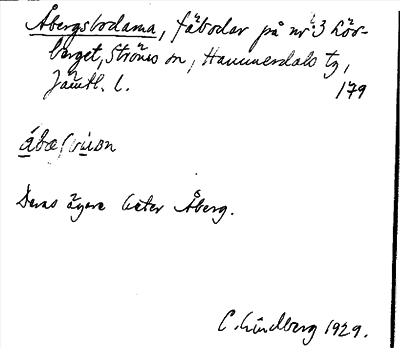 Åbergsbodarna, fäbodar på nr 3 Lör-
berget, Ströms sn, Hammerdals tg,
Jämtl. l. 179
Deras ägare heter Åberg.
C. Lindberg 1929.